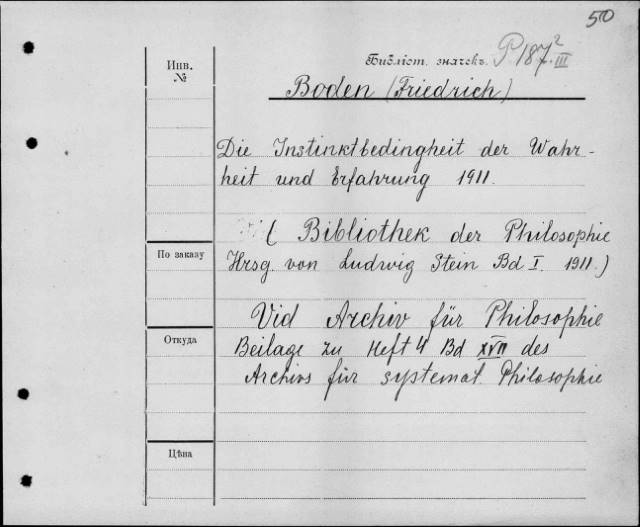 50
Инв. №
Бібліот. значекъ. P 187² III
Boden (Friedrich)
Die Instinktbedingheit der Wahr-
heit und Erfahrung 1911.
( Bibliothek der Philosophie
По заказу
Hrsg. von Ludwig Stein Bd I. 1911.)
Vid Archiv für Philosophie
Откуда
Beilage zu Heft 4 Bd XVII des
Archivs für systemat. Philosophie
Цѣна